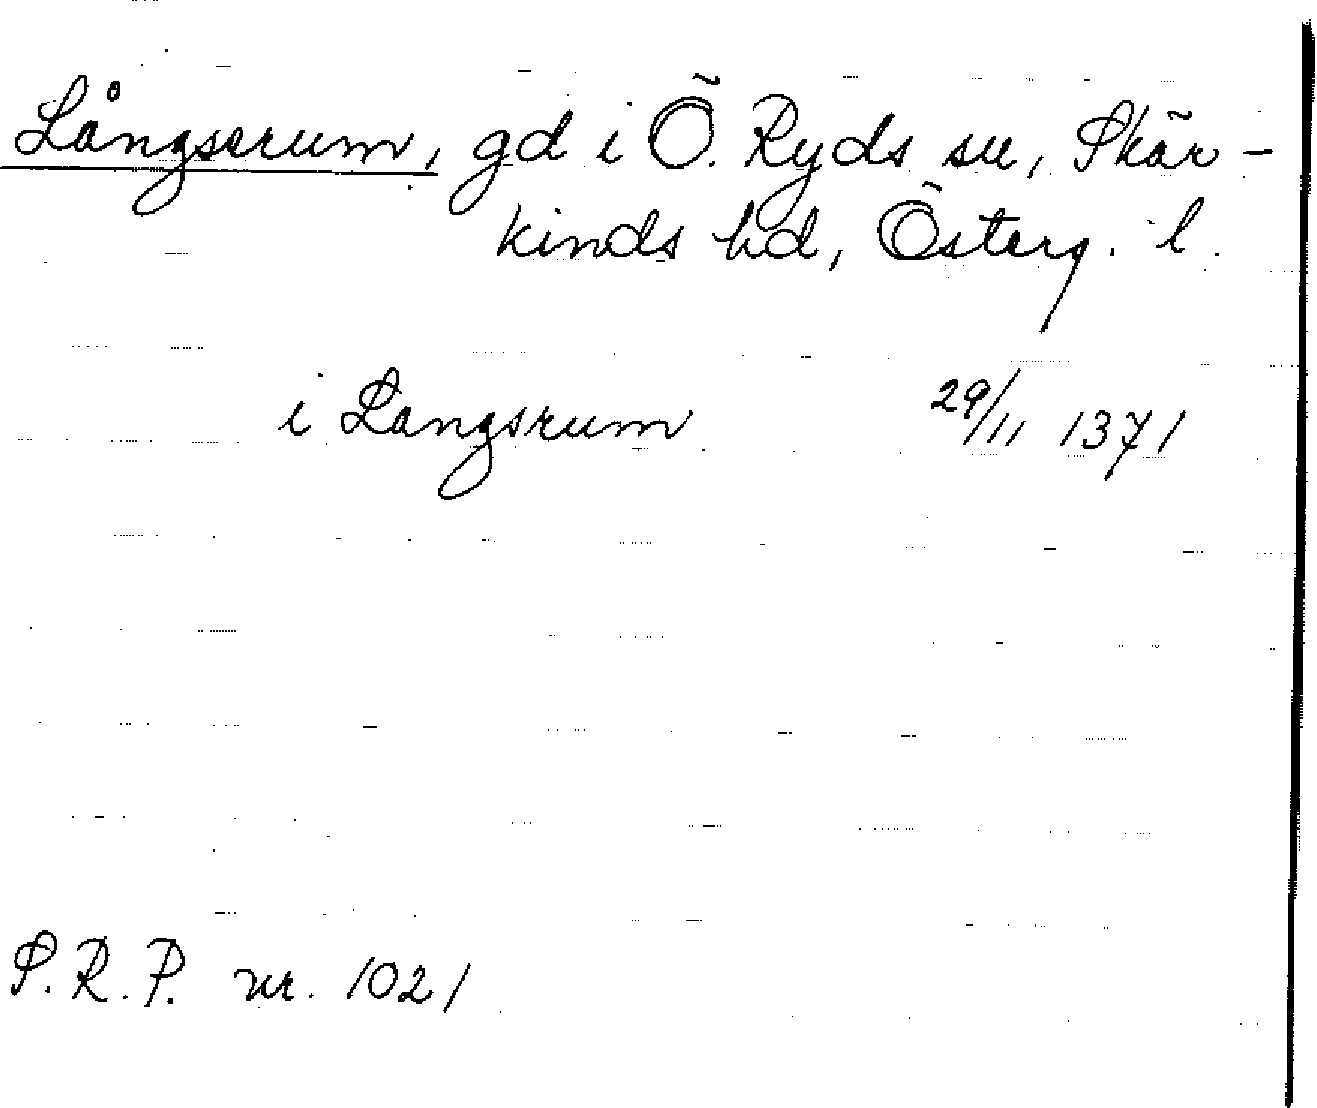 Långserum, gd i Ö. Ryds sn, Skär-
kinds hd, Österg. l.
i Langsrum 29/11 1371
S.R.P. nr. 1021